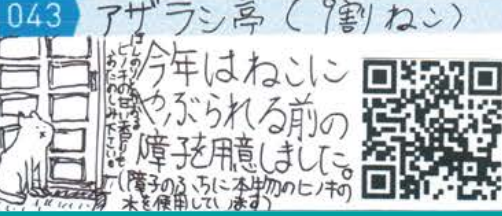 043 アザラシ亭(9割ねこ)
ほんのりとかおる
ヒノキの甘い香りも
お楽しみ下さい
今年はねこに
やぶられる前の
障子を用意しました。
(障子のふちに本物のヒノキの
木を使用しています)